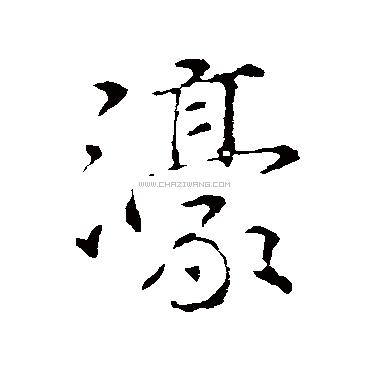 濠
WWW.CHAZIWANG.COM